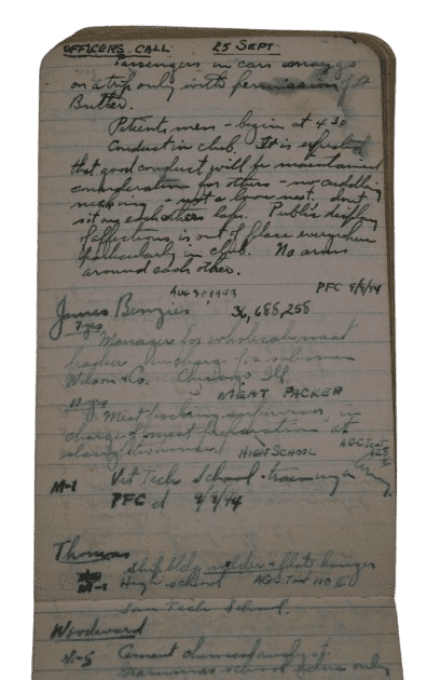 OFFICERS CALL 25 SEPT
Passengers in cars may go
on a trip only with permission of Lt
Butler.
Patients mess - begin at 430
Conduct in club. It is expected
that good conduct will be maintained
consideration for others - no cuddling
necking - not a love nest. don't
sit on each others laps. Public display
of affections is out of place everywhere
particularly in club. No arms
around each other.
Aug 3, 1943 PFC 9/9/44
James Benzies 36,688,258
7 yrs Manager for wholesale meat
packer in charge for
Wilson & Co. Chicago Ill
MEAT PACKER
Meat packing supervisor, in
charge of meat preparation at
HIGH SCHOOL AGC Test
M-1 Vet Tech School - training in
PFC d 9/9/44
Thomas
Ship bldg welder & plate hanger
M-1 High school AGC Test 110
San Tech School.
Woodward
M-5 Cement chemical analysis.
Grammar school only